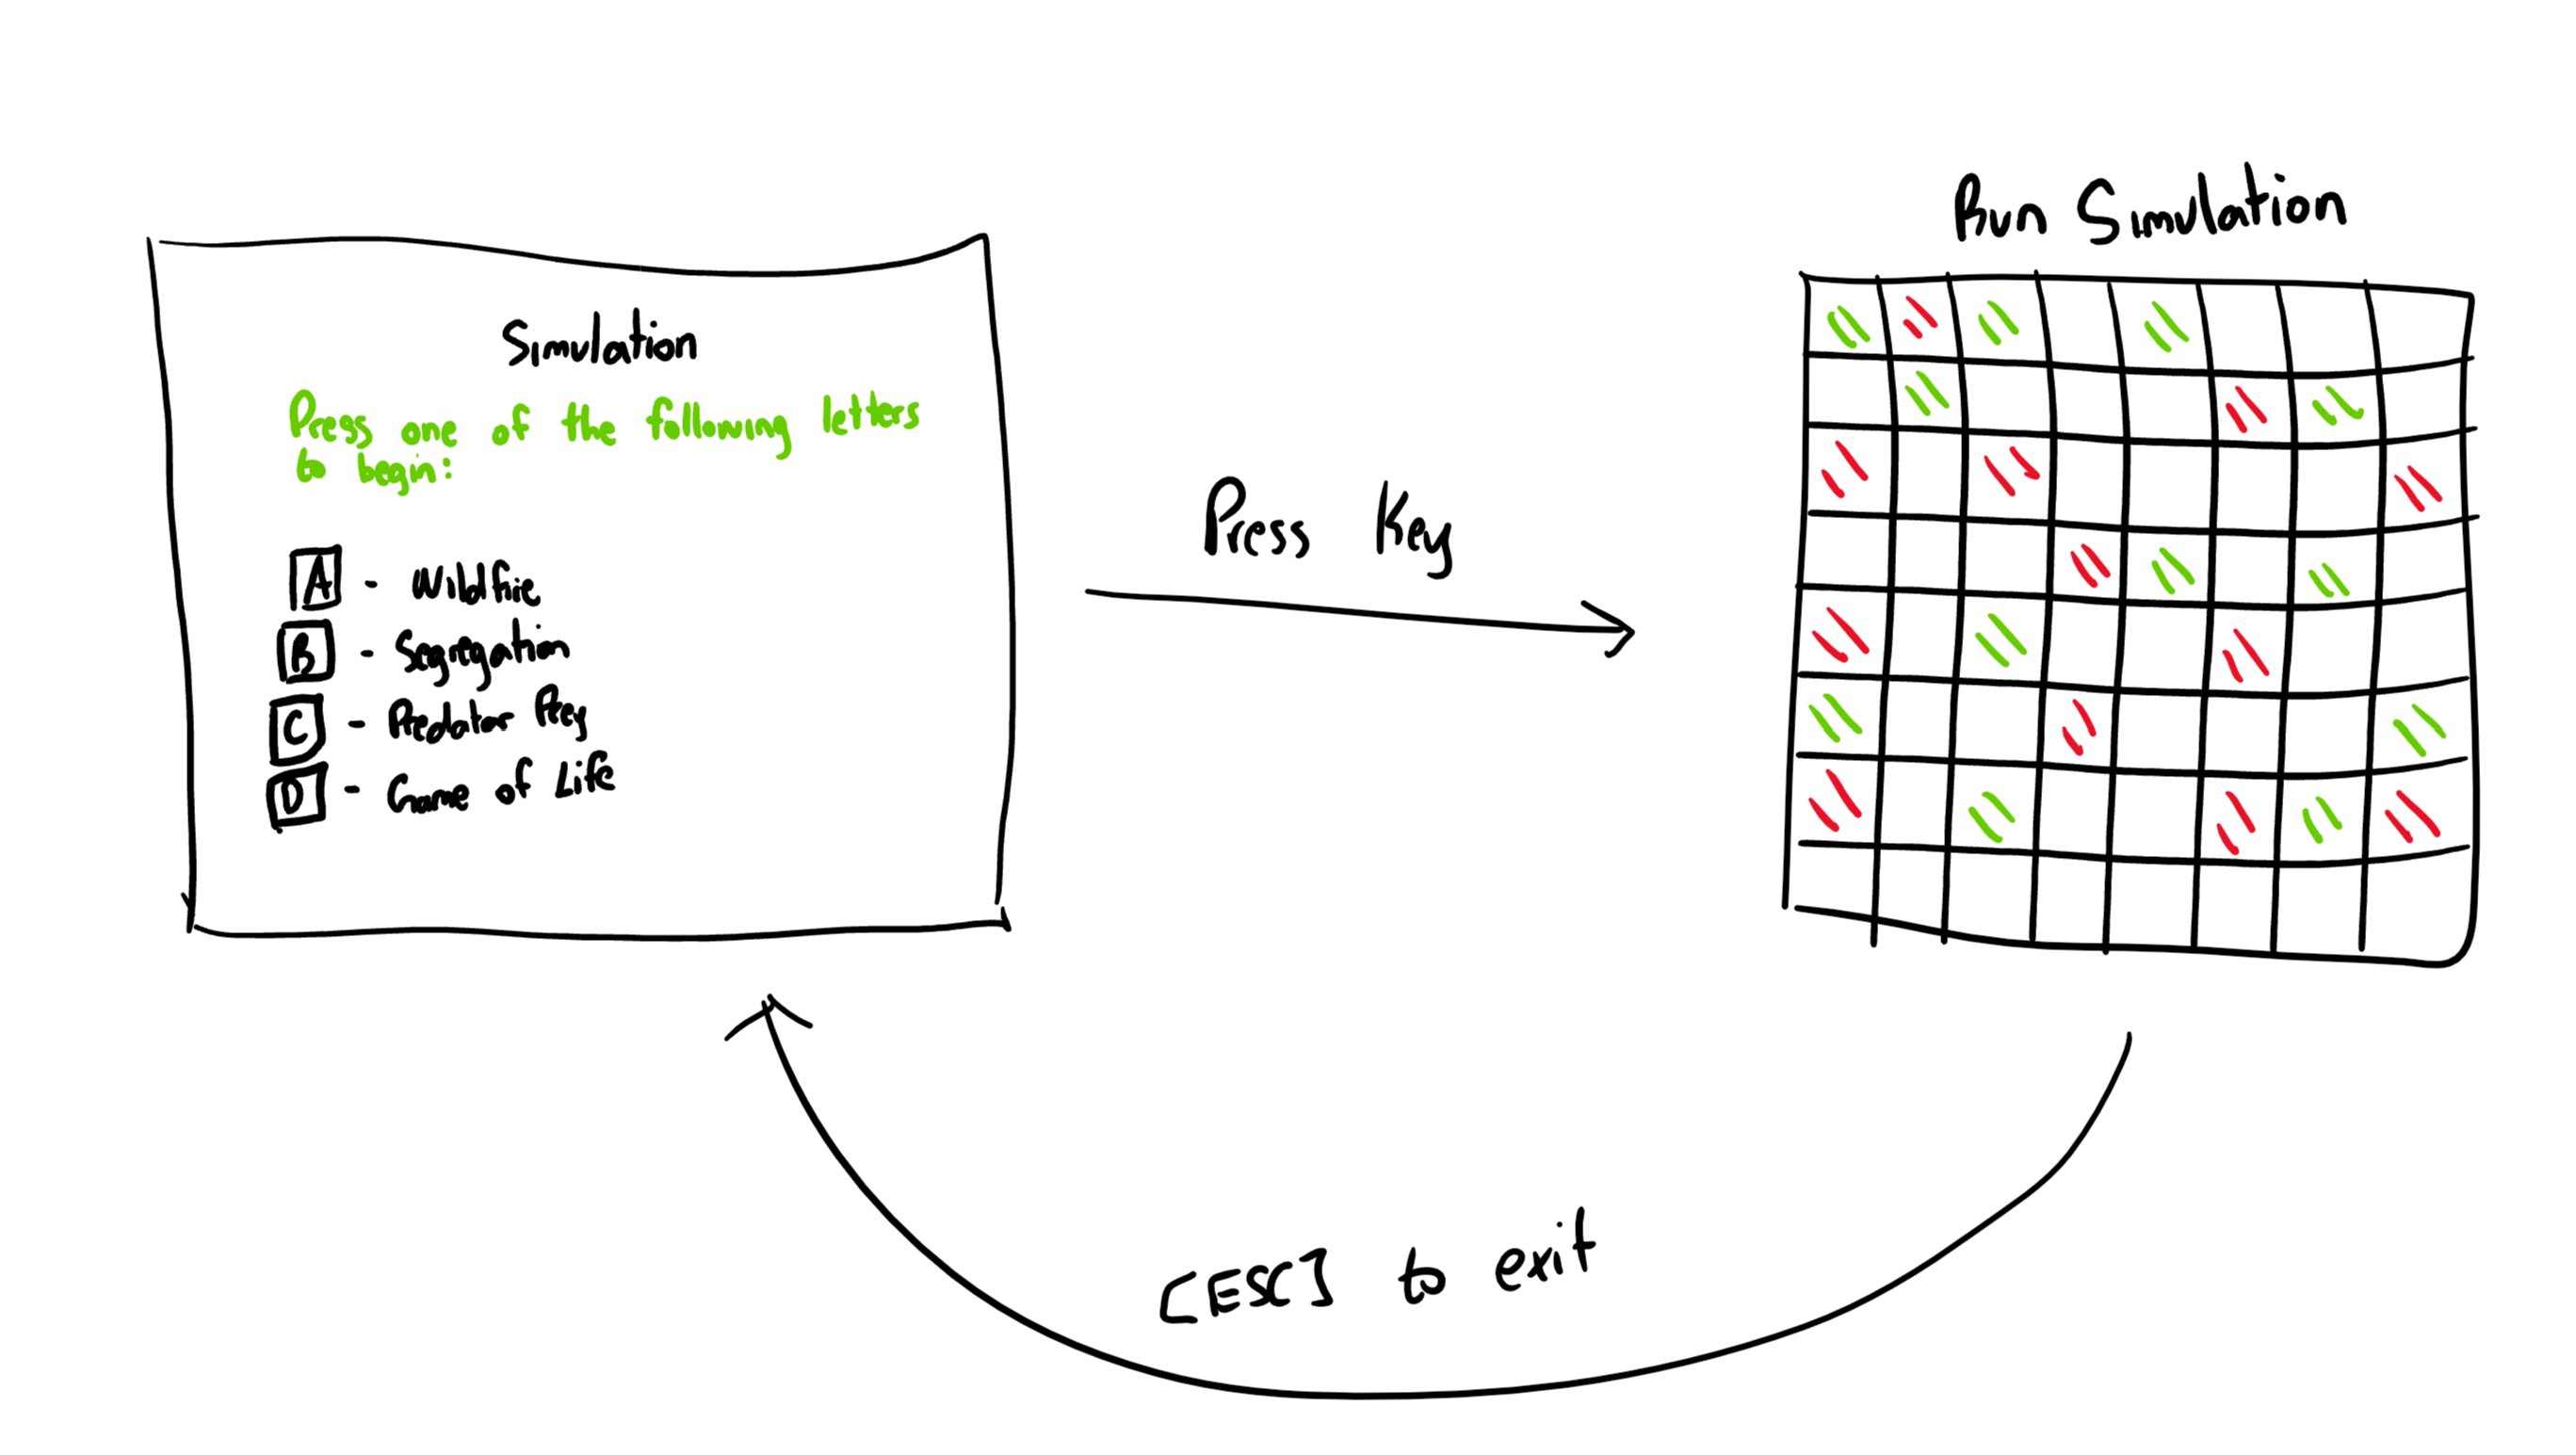 Simulation
Press one of the following letters
to begin:
A - Wildfire
B - Segregation
C - Predator Prey
D - Game of Life
Press Key
Run Simulation
[ESC] to exit